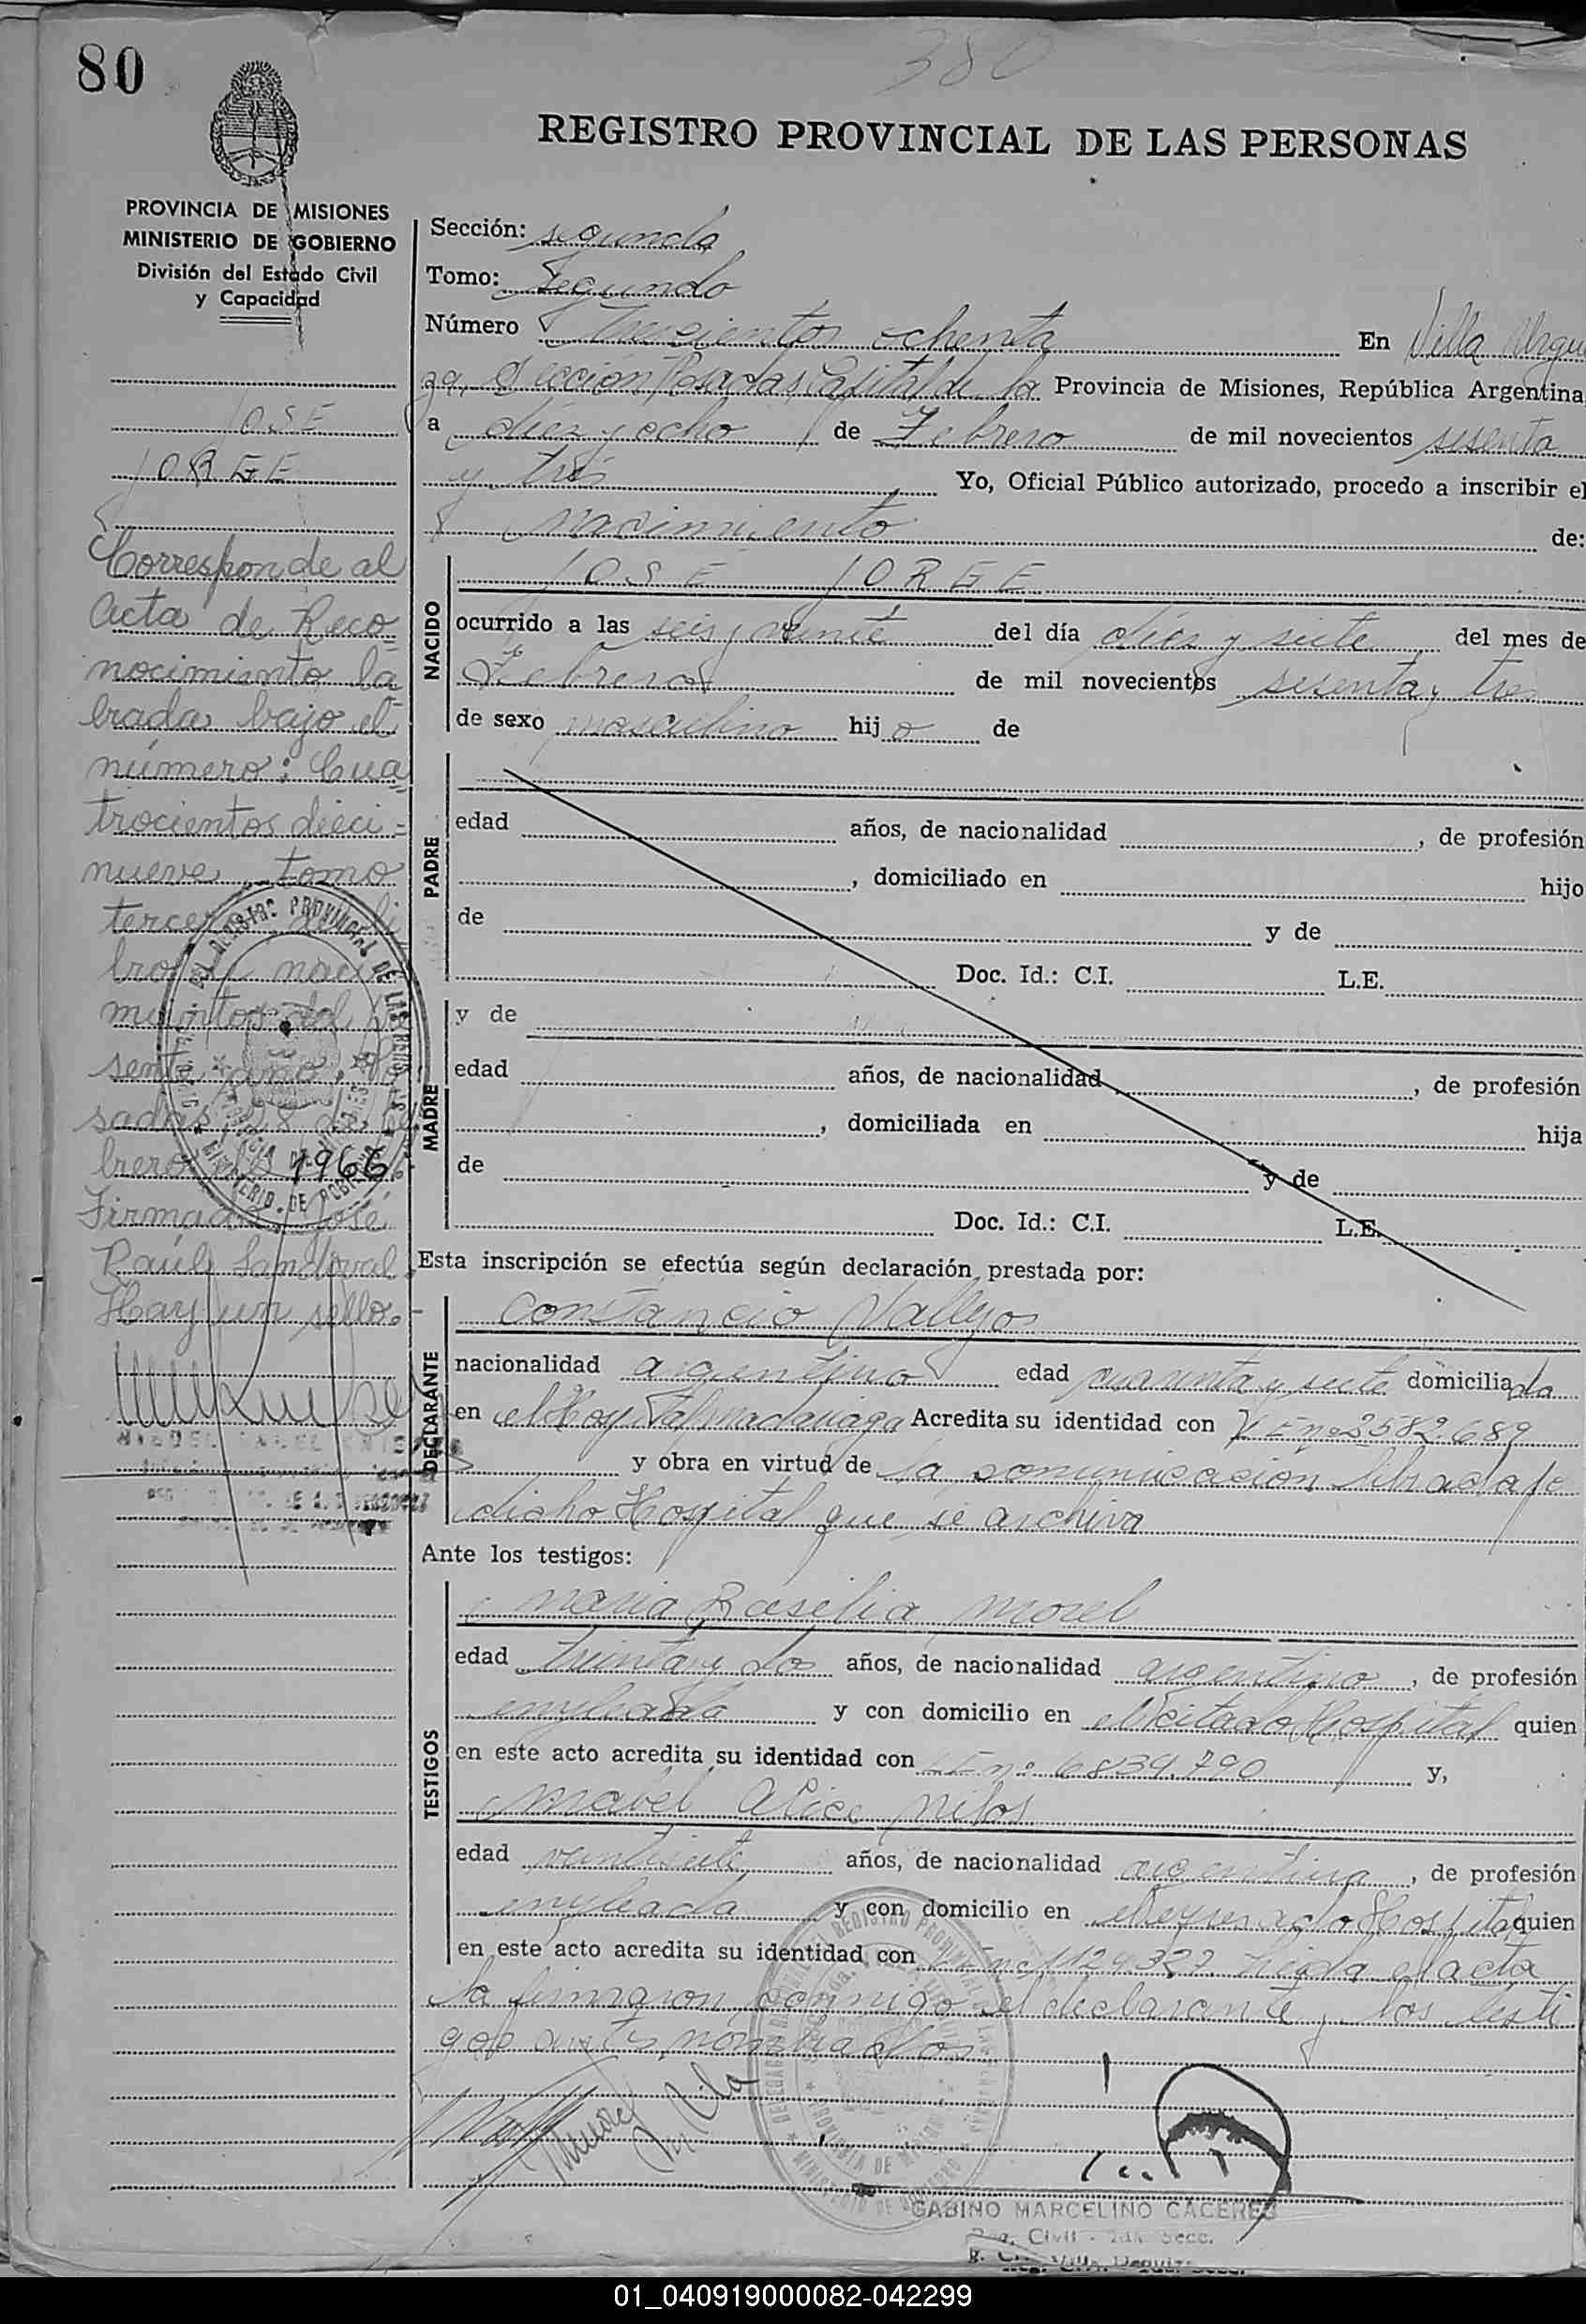 80
380
REGISTRO PROVINCIAL DE LAS PERSONAS
PROVINCIA DE MISIONES
MINISTERIO DE GOBIERNO
División del Estado Civil
y Capacidad
JOSE
JORGE
Corresponde al
Acta de Reco=
nocimiento la=
brada bajo el
número: Cua=
trocientos dieci=
nueve, tomo
tercero del li
bro de naci
mientos del pre
sente año, Po
sadas, 28 de Fe
brero de 1966
Firmado José
Raúl Sandoval
Hay un sello.-
Sección: segunda
Tomo: Segundo
Número Trescientos ochenta En Villa Urqui
za, Sección Posadas Capital de la Provincia de Misiones, República Argentina,
a diez y ocho de Febrero de mil novecientos sesenta
y tres Yo, Oficial Público autorizado, procedo a inscribir el
nacimiento de:
NACIDO
JOSE JORGE
ocurrido a las seis y veinte del día diez y siete del mes de
Febrero de mil novecientos sesenta y tres
de sexo masculino hijo de
PADRE
edad años, de nacionalidad , de profesión
, domiciliado en hijo
de y de
Doc. Id.: C.I. L.E.
MADRE
y de
edad años, de nacionalidad , de profesión
, domiciliada en hija
de y de
Doc. Id.: C.I. L.E.
Esta inscripción se efectúa según declaración prestada por:
DECLARANTE
Constancio Vallejos
nacionalidad argentino edad cuarenta y siete domiciliado
en el Hospital Madariaga Acredita su identidad con nº 2582.689
y obra en virtud de la comunicación librada
dicho Hospital que se archiva
Ante los testigos:
TESTIGOS
Maria Rosilia Morel
edad treinta y dos años, de nacionalidad argentina, de profesión
empleada y con domicilio en el citado Hospital quien
en este acto acredita su identidad con nº 6839.790 y,
Mabel Alice
edad veintisiete años, de nacionalidad argentina, de profesión
empleada y con domicilio en el expresado Hospital quien
en este acto acredita su identidad con nº 1124.327. Leída el acta
la firmaron conmigo el declarante y los testi
gos antes nombrados
GABINO MARCELINO CACERES
01_040919000082-042299